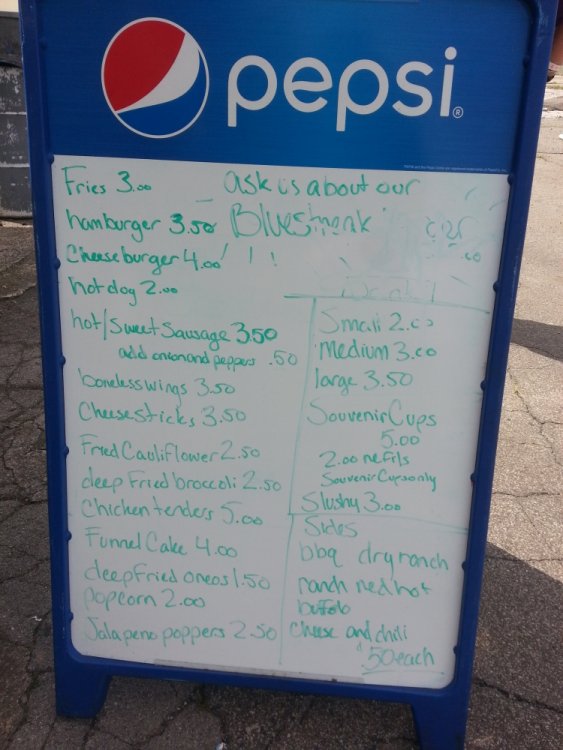 pepsi
Fries 3.00
hamburger 3.50
Cheeseburger 4.00
hot dog 2.00
hot/Sweet Sausage 3.50
add onion and peppers .50
boneless wings 3.50
Cheese Sticks 3.50
Fried Cauliflower 2.50
deep Fried broccoli 2.50
Chicken tenders 5.00
Funnel Cake 4.00
deep Fried oreos 1.50
popcorn 2.00
Jalapeno poppers 2.50
ask us about our
! ! !
Small 2.00
Medium 3.00
large 3.50
Souvenir Cups
5.00
2.00 refils
Souvenir Cups only
Slushy 3.00
Sides
bbq dry ranch
ranch red hot
buffalo
Cheese and chili
.50 each